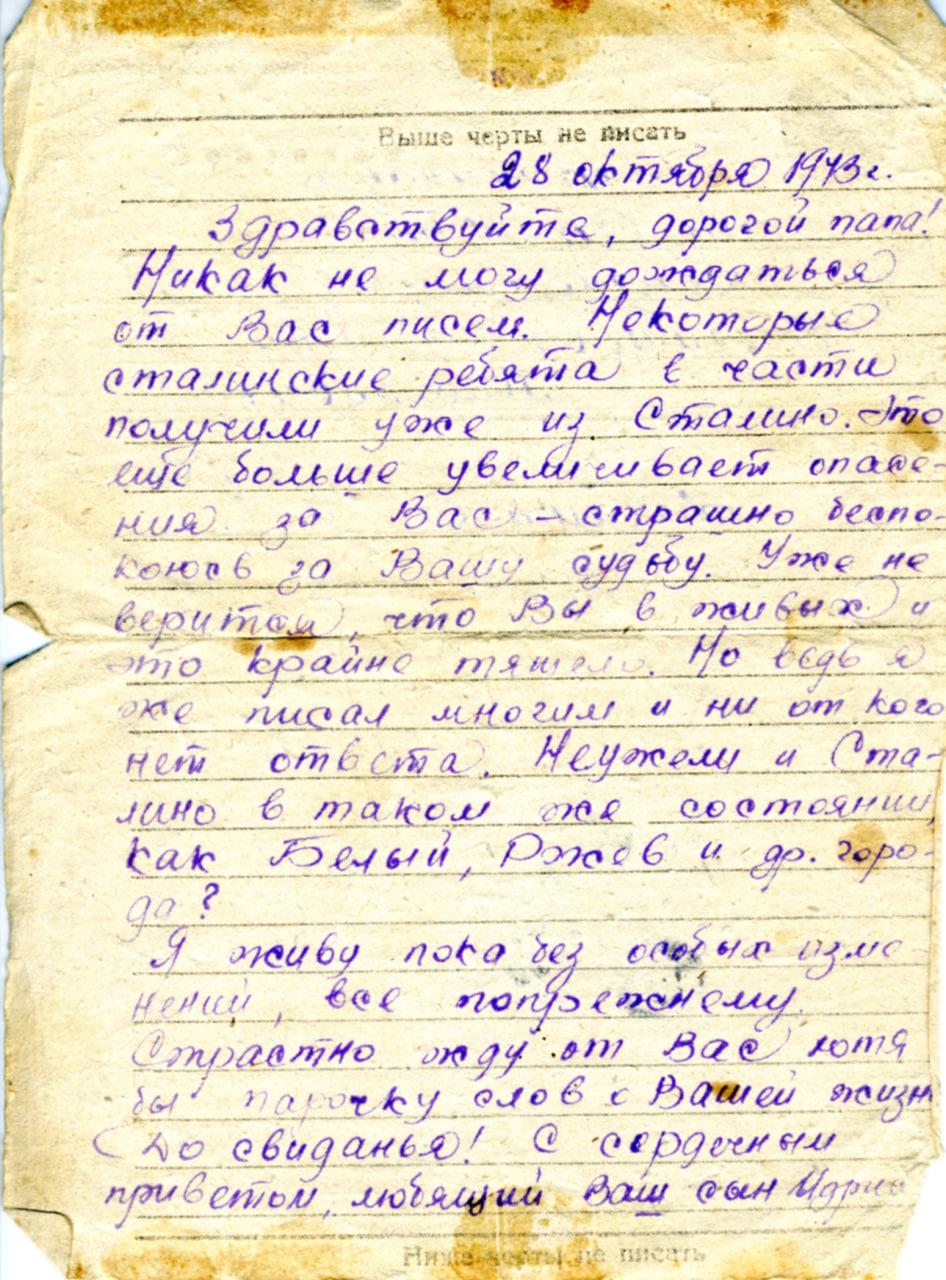 Выше черты не писать
28 октября 1943 г.
Здравствуйте, дорогой папа!
Никак не могу дождаться
от Вас писем. Некоторые
сталинские ребята в части
получили уже из Сталино. Это
еще больше увеличивает опасе-
ния за Вас – страшно беспо-
коюсь за Вашу судьбу. Уже не
верится, что Вы в живых и
это крайне тяжело. Но ведь я
же писал многим и ни от кого
нет ответа. Неужели и Ста-
лино в таком же состоянии,
как Белый, Ржев и др. горо-
да?
Я живу пока без особых изме-
нений, все попрежнему.
Страстно жду от Вас хотя
бы парочку слов о Вашей жизни
До свиданья! С сердечным
приветом, любящий Ваш сын Идрис
Ниже черты не писать